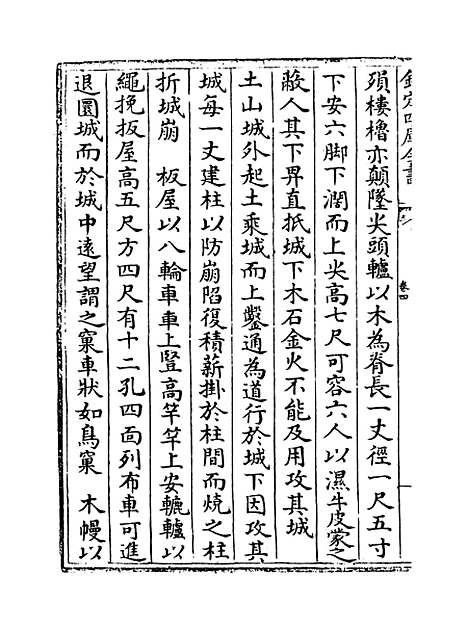 欽定四庫全書
卷四
殞棲櫓亦顛墜尖頭轤以木為脊長一丈徑一尺五寸
下安六脚下濶而上尖高七尺可容六人以濕牛皮蒙之
蔽人其下舁直抵城下木石金火不能及用攻其城
土山城外起土乘城而上鑿通為道行於城下因攻其
城每一丈建柱以防崩陷復積薪掛於柱間而燒之柱
折城崩　板屋以八輪車車上豎高竿竿上安轆轤以
繩挽板屋高五尺方四尺有十二孔四面列布車可進
退圜城而於城中遠望謂之窠車狀如鳥窠　木幔以